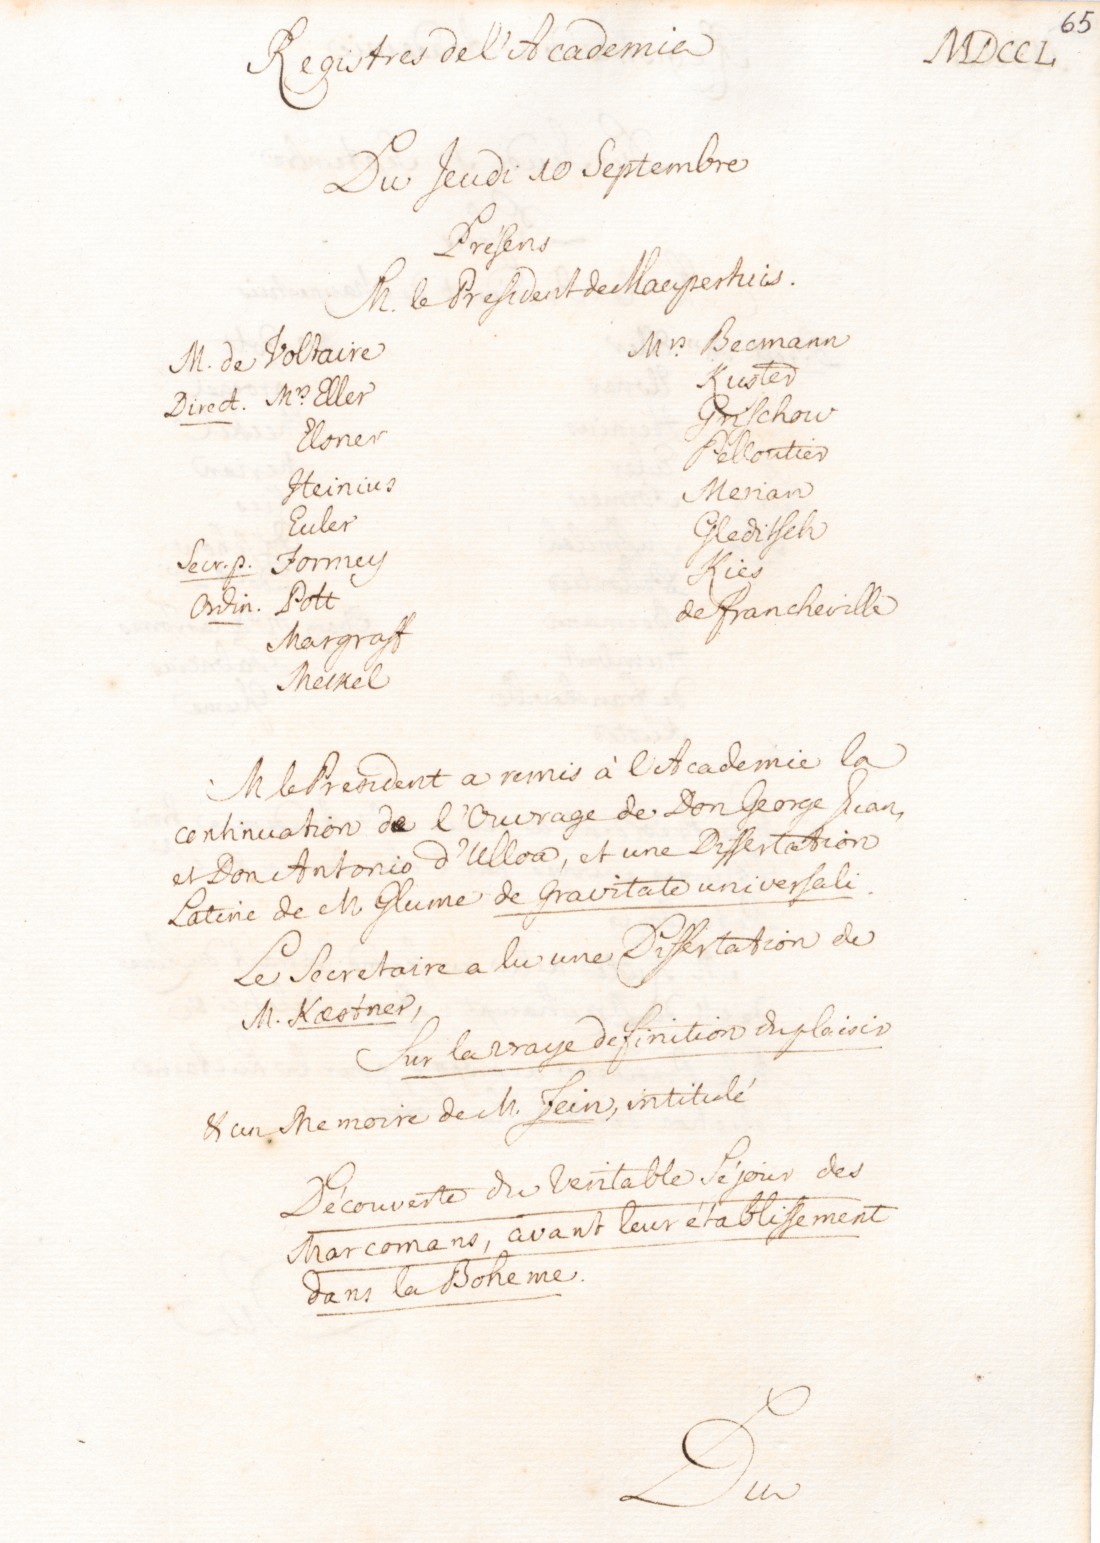 65
Registres de l'Academie
MDCCL
Du Jeudi 10 Septembre
Présens
M. le President de Maupertuis.
M. de Voltaire
Direct. Mrs Eller
Elsner
Heinius
Euler
Secr. p. Formey
Ordin. Pott
Margraff
Meckel
Mrs Becmann
Kuster
Grischow
Pelloutier
Merian
Gleditsch
Kies
de Francheville
M le President a remis à l'Academie la
continuation de l'Ouvrage de Don George Juan,
et Don Antonio d'Ulloa, et une Dissertation
Latine de M Glume de Gravitate universali.
Le Secretaire a lu une Dissertation de
M. Kæstner,
Sur la vraye definition du plaisir
& un Memoire de M. Fein, intitulé
Découverte du veritable Séjour des
Marcomans, avant leur établissement
dans la Boheme.
Du